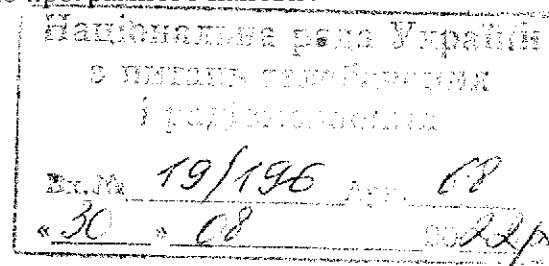 Національна рада України
з питань телебачення
і радіомовлення
Вх.№ 19/196 Арк. 68
«30» 08 2022р